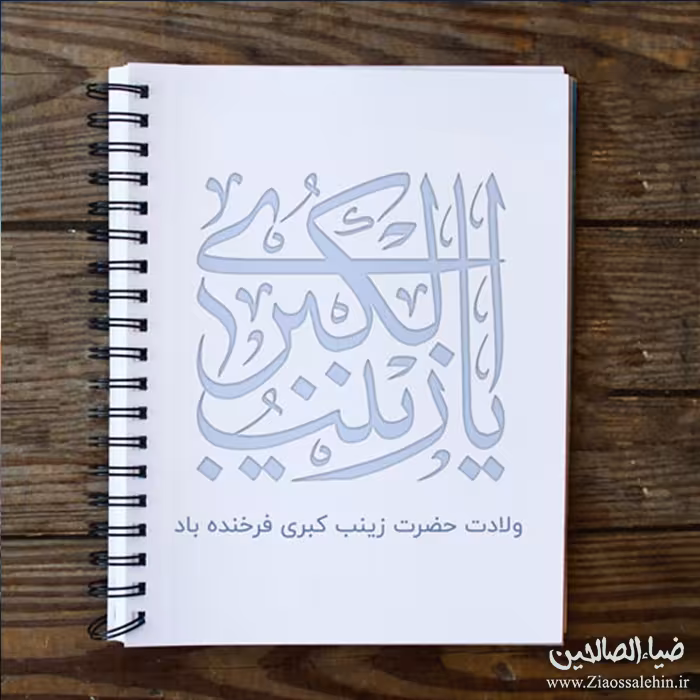 یا زینب الکبری
ولادت حضرت زینب کبری فرخنده باد
ضیاءالصالحین
www.Ziaossalehin.ir